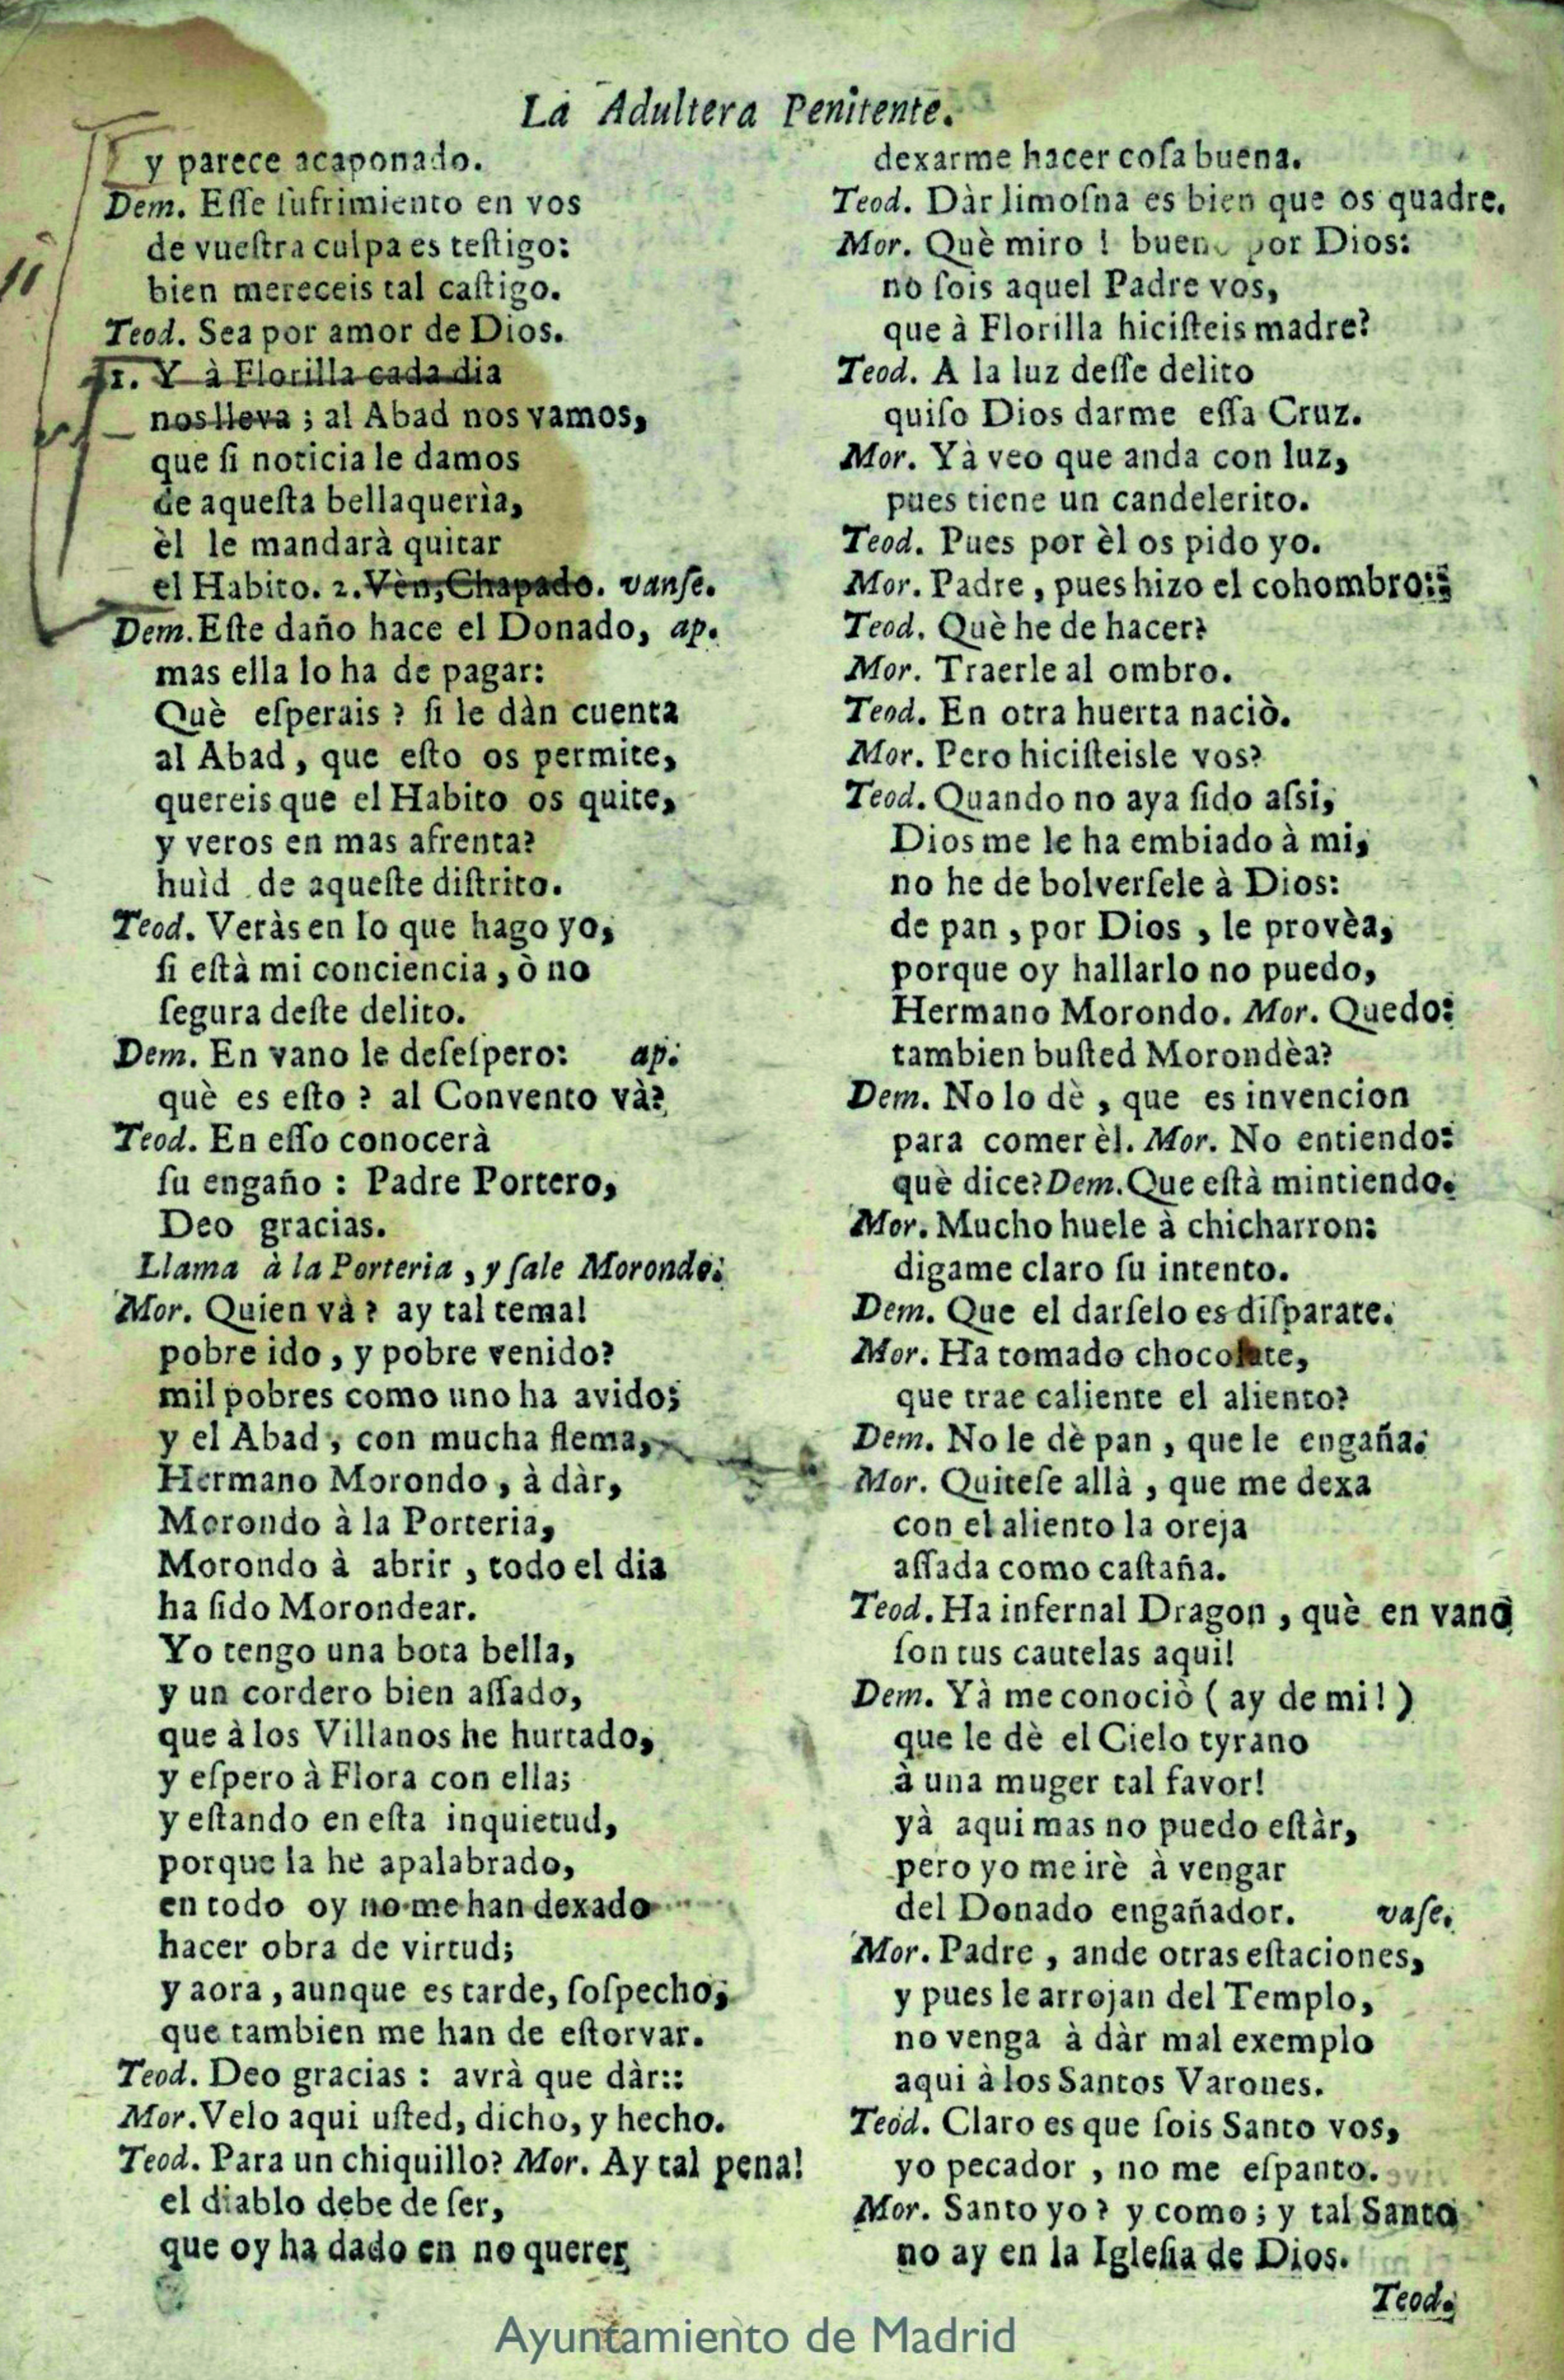 La Adultera Penitente.
y parece acaponado.
Dem. Esse sufrimiento en vos
de vuestra culpa es testigo:
bien mereceis tal castigo.
Teod. Sea por amor de Dios.
1. Y à Florilla cada dia
nos lleva ; al Abad nos vamos,
que si noticia le damos
de aquesta bellaqueria,
èl le mandarà quitar
el Habito. 2. Vèn, Chapado. vanse.
Dem. Este daño hace el Donado, ap.
mas ella lo ha de pagar:
Què esperais ? si le dàn cuenta
al Abad, que esto os permite,
quereis que el Habito os quite,
y veros en mas afrenta?
huìd de aqueste distrito.
Teod. Veràs en lo que hago yo,
si està mi conciencia, ò no
segura deste delito.
Dem. En vano le desespero: ap.
què es esto ? al Convento và?
Teod. En esso conocerà
su engaño : Padre Portero,
Deo gracias.
Llama à la Porteria, y sale Morondo.
Mor. Quien và ? ay tal tema!
pobre ido, y pobre venido?
mil pobres como uno ha avido;
y el Abad, con mucha flema,
Hermano Morondo, à dàr,
Morondo à la Porteria,
Morondo à abrir, todo el dia
ha sido Morondear.
Yo tengo una bota bella,
y un cordero bien assado,
que à los Villanos he hurtado,
y espero à Flora con ella;
y estando en esta inquietud,
porque la he apalabrado,
en todo oy no me han dexado
hacer obra de virtud;
y aora, aunque es tarde, sospecho,
que tambien me han de estorvar.
Teod. Deo gracias : avrà que dàr::
Mor. Velo aqui usted, dicho, y hecho.
Teod. Para un chiquillo? Mor. Ay tal pena!
el diablo debe de ser,
que oy ha dado en no querer
dexarme hacer cosa buena.
Teod. Dàr limosna es bien que os quadre.
Mor. Què miro ! bueno por Dios:
no sois aquel Padre vos,
que à Florilla hicisteis madre?
Teod. A la luz desse delito
quiso Dios darme essa Cruz.
Mor. Yà veo que anda con luz,
pues tiene un candelerito.
Teod. Pues por èl os pido yo.
Mor. Padre, pues hizo el cohombro::
Teod. Què he de hacer?
Mor. Traerle al ombro.
Teod. En otra huerta naciò.
Mor. Pero hicisteisle vos?
Teod. Quando no aya sido assi,
Dios me le ha embiado à mi,
no he de bolversele à Dios:
de pan, por Dios, le provèa,
porque oy hallarlo no puedo,
Hermano Morondo. Mor. Quedo:
tambien busted Morondèa?
Dem. No lo dè, que es invencion
para comer èl. Mor. No entiendo:
què dice? Dem. Que està mintiendo.
Mor. Mucho huele à chicharron:
digame claro su intento.
Dem. Que el darselo es disparate.
Mor. Ha tomado chocolate,
que trae caliente el aliento?
Dem. No le dè pan, que le engaña.
Mor. Quitese allà, que me dexa
con el aliento la oreja
assada como castaña.
Teod. Ha infernal Dragon, què en vano
son tus cautelas aqui!
Dem. Yà me conociò ( ay de mi! )
que le dè el Cielo tyrano
à una muger tal favor!
yà aqui mas no puedo estàr,
pero yo me irè à vengar
del Donado engañador. vase.
Mor. Padre, ande otras estaciones,
y pues le arrojan del Templo,
no venga à dàr mal exemplo
aqui à los Santos Varones.
Teod. Claro es que sois Santo vos,
yo pecador, no me espanto.
Mor. Santo yo ? y como ; y tal Santo
no ay en la Iglesia de Dios.
Teod.
Ayuntamiento de Madrid